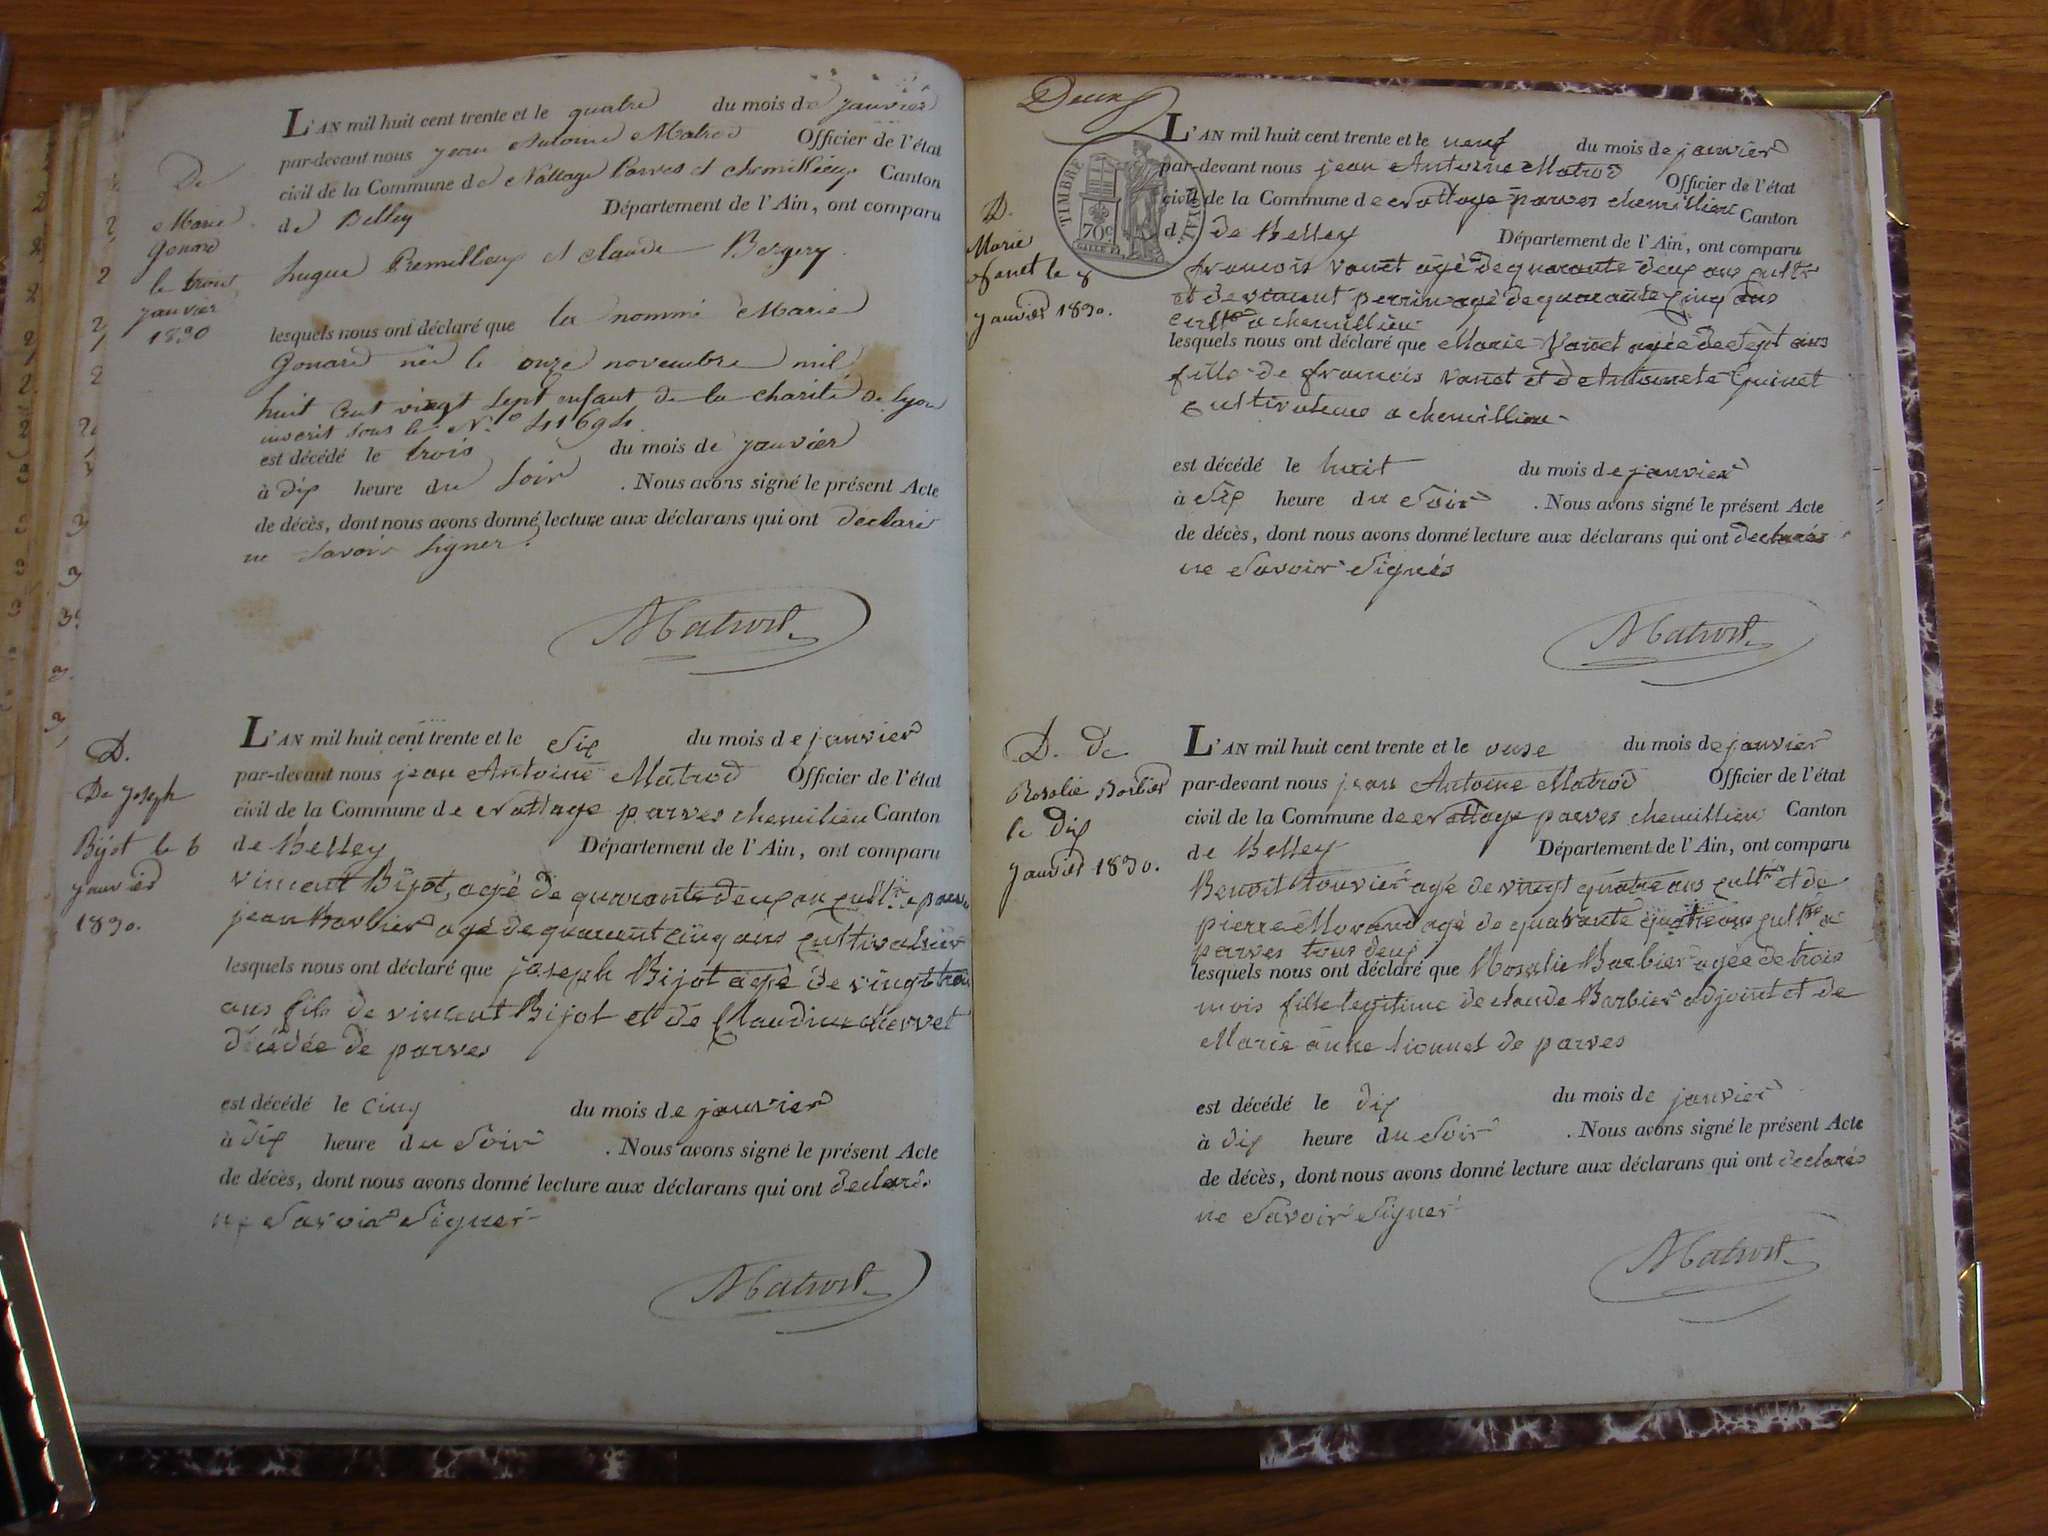 L'AN mil huit cent trente et le quatre du mois de janvier
par-devant nous jean Antoine Matrod Officier de l'état
civil de la Commune de Nattage Parves et chemillieu Canton
de Belley Département de l'Ain, ont comparu
hugue Premillieux et claude Bergery
lesquels nous ont déclaré que la nommé Marie
Gonard née le onze novembre mil
huit cent vingt sept enfant de la charité de lyon
inscrit sous le N.
est décédé le trois du mois de janvier
à dix heure du soir . Nous avons signé le présent Acte
de décès, dont nous avons donné lecture aux déclarans qui ont declaré
ne savoir signer.
Matrod
De
Marie
Gonard
le trois
janvier
1830
L'AN mil huit cent trente et le six du mois de janvier
par-devant nous jean Antoine Matrod Officier de l'état
civil de la Commune de nattage parves chemilieu Canton
de Belley Département de l'Ain, ont comparu
vincent Bijot, agé de quarante deux an cultr. a parve
jean Barbier agé de quarent cinq ans cultivateur
lesquels nous ont déclaré que joseph Bijot agé de vingt trois
ans fils de vincent Bijot et de Claudine chervet
décédée de parves
est décédé le cinq du mois de janvier
à dix heure du soir . Nous avons signé le présent Acte
de décès, dont nous avons donné lecture aux déclarans qui ont declaré
ne savoir signer
Matrod
D.
De joseph
Bijot le 6
janvier
1830.
Deux
TIMBRE ROYAL
70c
L'AN mil huit cent trente et le neuf du mois de janvier
par-devant nous jean Antoine Matrod Officier de l'état
civil de la Commune de nattage parves chemillieu Canton
d. de Belley Département de l'Ain, ont comparu
francois vanet agé de quarante deux ans cultr
et de vincent perrin agé de quarante cinq ans
cultr a chemillieu
lesquels nous ont déclaré que Marie Vanet agée de sept ans
fille de francois vanet et de Antoinete Guinet
cultivateur a chemillieu
est décédé le huit du mois de janvier
à six heure du soir . Nous avons signé le présent Acte
de décès, dont nous avons donné lecture aux déclarans qui ont declarés
ne savoir signés
Matrod
D.
Marie
Vanet le 8
janvier 1830.
L'AN mil huit cent trente et le onse du mois de janvier
par-devant nous jean Antoine Matrod Officier de l'état
civil de la Commune de nattage parves chemillieu Canton
de Belley Département de l'Ain, ont comparu
Benoit touvier agé de vingt quatre ans cultr et de
pierre Morand agé de quarante quatre ans cultr a
parves tous deux
lesquels nous ont déclaré que Rosalie Barbier agée de trois
mois fille legitime de claude Barbier adjoint et de
Marie anne tionnet de parves
est décédé le dix du mois de janvier
à dix heure du soir . Nous avons signé le présent Acte
de décès, dont nous avons donné lecture aux déclarans qui ont declarés
ne savoir signer
Matrod
D. De
Rosalie Barbier
le dix
janvier 1830.